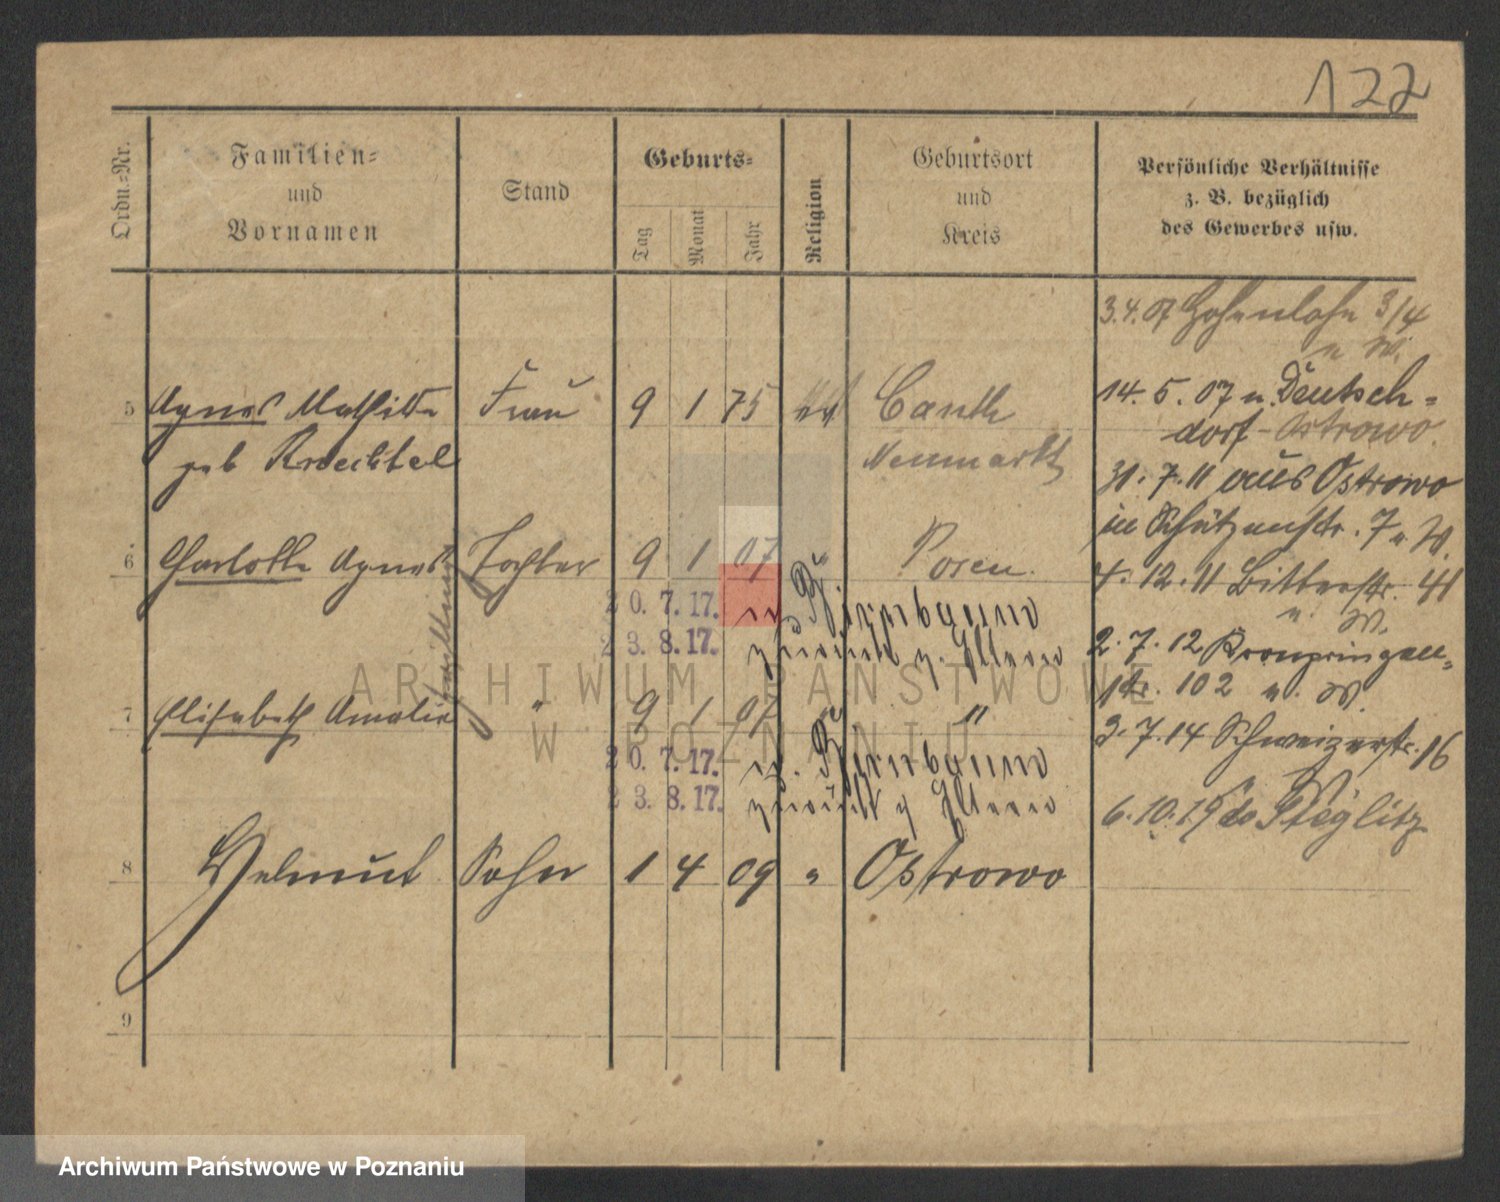 122
Ordn.-Nr.
Familien-
und
Vornamen
Stand
Geburts-
Tag
Monat
Jahr
Religion
Geburtsort
und
Kreis
Persönliche Verhältnisse
z. B. bezüglich
des Gewerbes usw.
3.4.07 Hohenlohe 3/4
u W.
5 Agnes Mathilde Frau 9 1 75 ev Canth
geb Knechtel Neumarkt
14. 5. 07 n. Deutsch-
dorf-Ostrowo.
31. 7. 11 aus Ostrowo
in Schützenstr. 7 u W.
6 Charlotte Agnes Tochter 9 1 07 Posen.
4. 12. 11 Bitterstr. 41
u. W.
20. 7. 17. n.
23. 8. 17. zurück z. Eltern
2. 7. 12 Kronprinzen-
str. 102 u. W.
7 Elisabeth Amalie " 9 1 07 "
3. 7. 14 Schweizerstr. 16
u W.
20. 7. 17. n.
23. 8. 17. zurück z Eltern
6. 10. 19 do Steglitz
8 Helmut Sohn 1 4 09 " Ostrowo
9
Zwillinge
ARCHIWUM PAŃSTWOWE
W POZNANIU
Archiwum Państwowe w Poznaniu